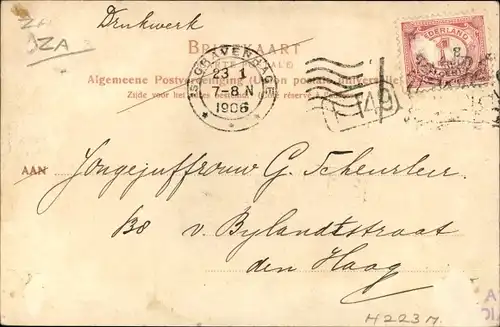 Drukwerk
ZA
BRIEFKAART
(CARTE POSTALE)
Algemeene Postvereeniging (Union postale universelle)
Zijde voor het adres bestemd. (Côté réservé à l'adresse.)
'S-GRAVENHAGE
23 1
7-8 N
1906
NEDERLAND
1
149
AAN Jongejuffrouw G. Scheurleer
138 v. Bylandtstraat
den Haag
H223M